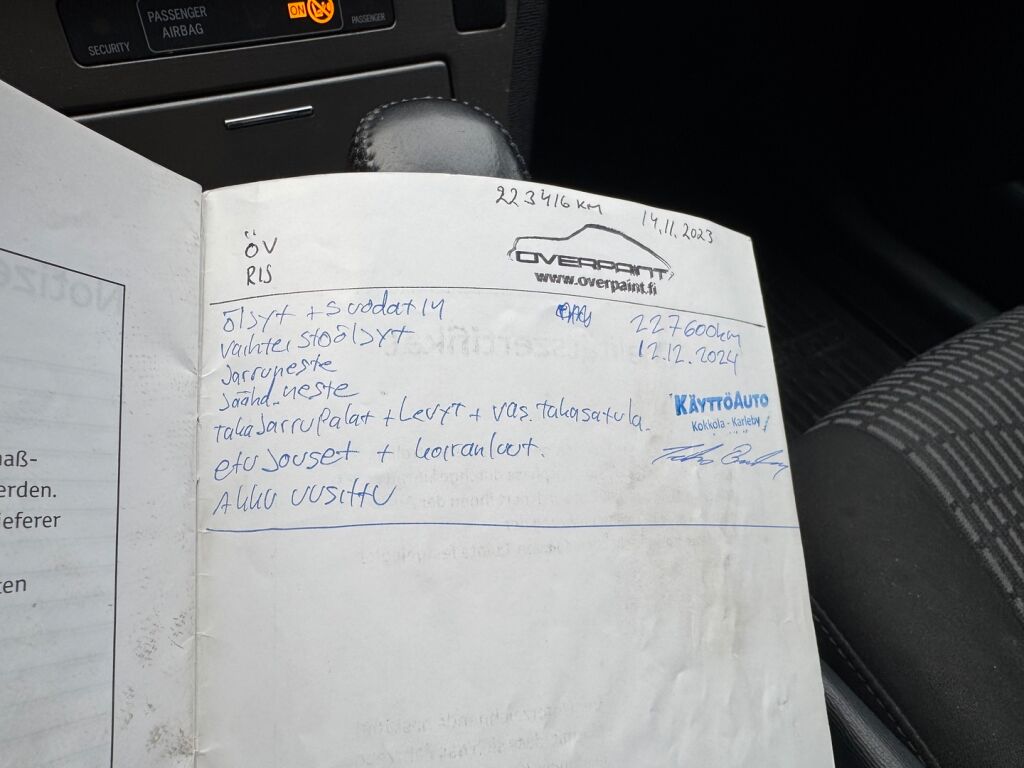 SECURITY
PASSENGER
AIRBAG
ON
PASSENGER
223416 KM 14.11.2023
ÖV
RIS
OVERPAINT
www.overpaint.fi
Öljyt + Suodatin 227600km
Vaihteistoöljyt 12.12.2024
Jarruneste
Jäähd.neste
KÄYTTÖAUTO
Kokkola - Karleby
takaJarruPalat + Levyt + vas. takasatula.
etuJouset + koiranluut.
Akku uusittu
Notize
aß-
erden.
ieferer
ten